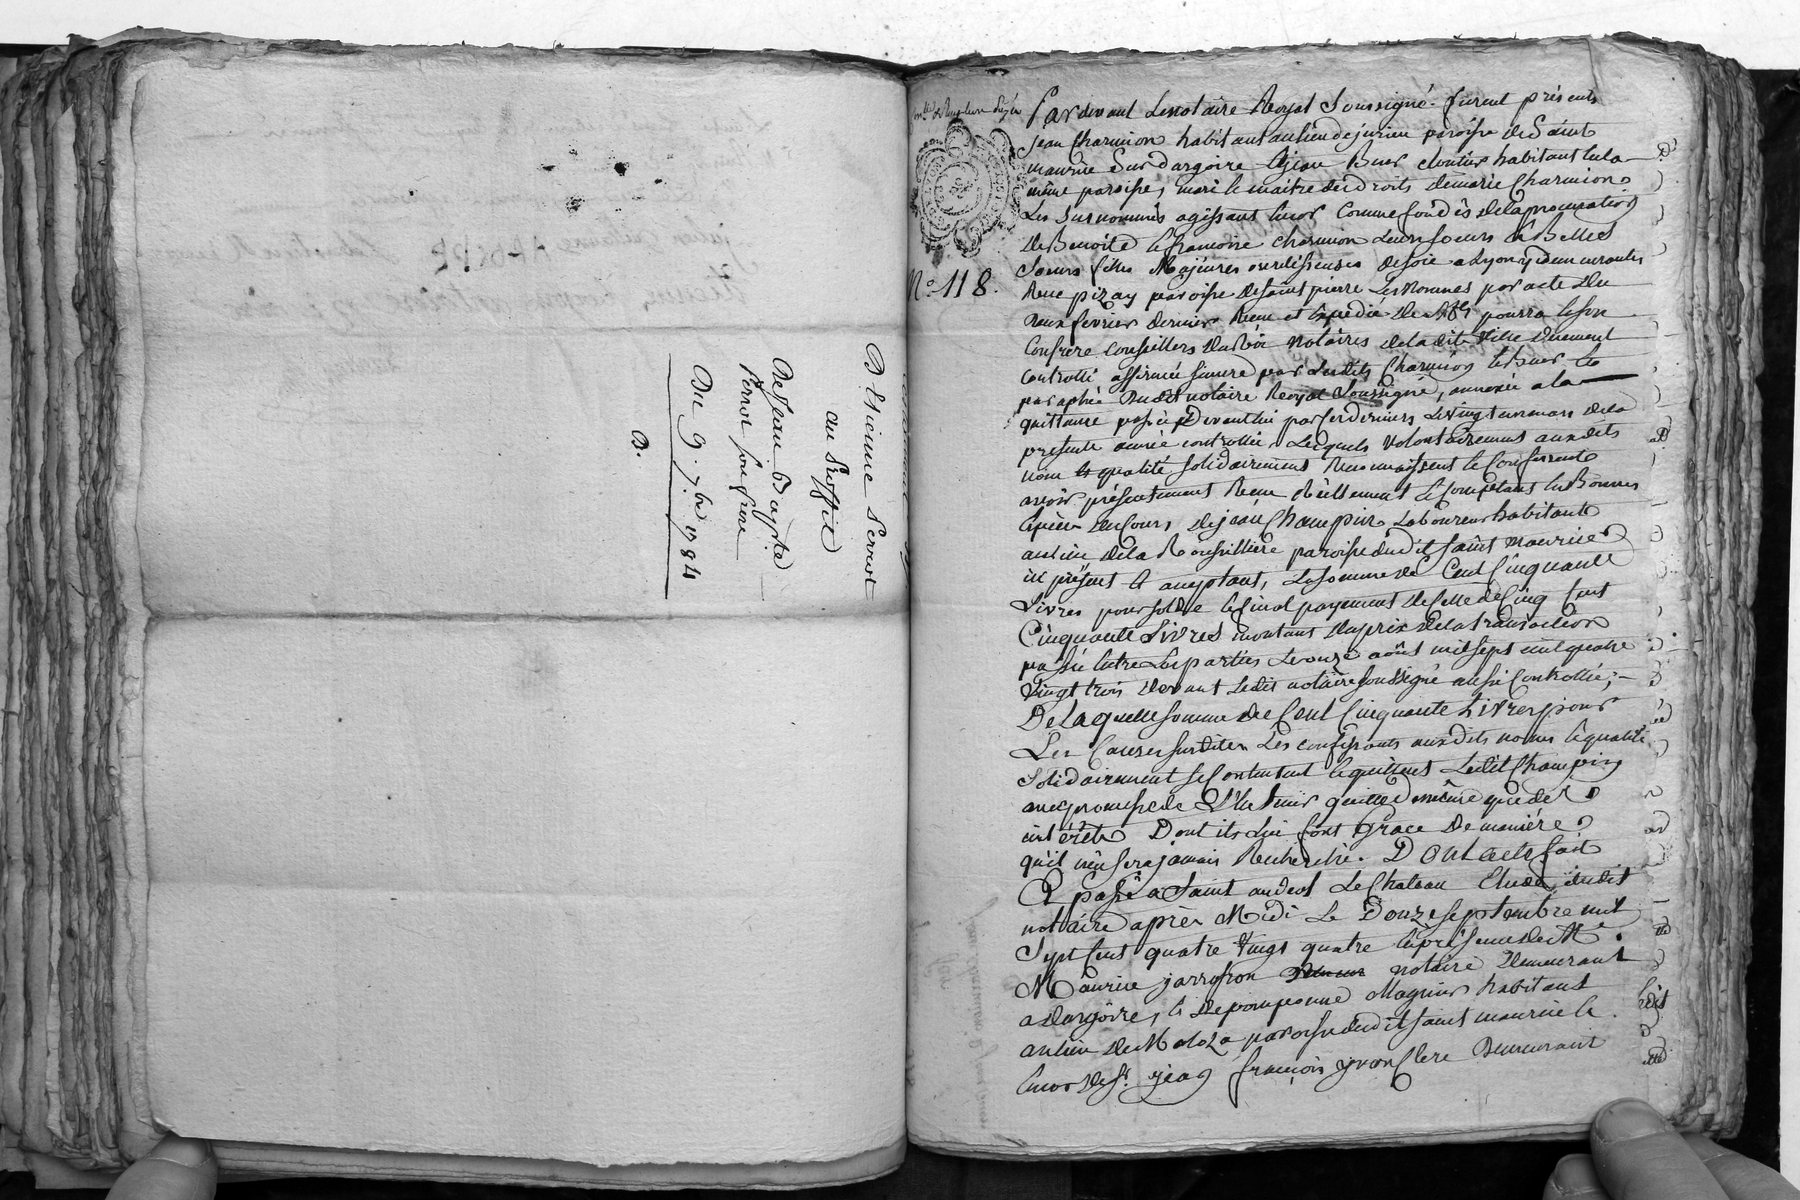 D'Etienne Servant
au Proffit
De Jean Baptte
Ferron son frere
Du 9. 7.bre 1784
B.
N.º 118.
Pardevant Le notaire Royal Soussigné. furent présents
jean Charmion habitant au lieu de jurieu paroisse de Saint
maurice Sur dargoire & jean Buer cloutier habitant en la
même paroisse, mari & maitre des droits de marie Charmion,
Les susnommés agissant encor Comme fondés de la procuration
de Benoite & francoise charmion Leurs soeurs & Belles
Soeurs filles Majeures ourdisseuses de soie a Lyon y demeurantes
Rue pizay paroisse de saint pierre Les Nonnes par acte du
Deux fevrier dernier Recu et Expedié de Me pourra & son
Confrere Conseillers du Roi Notaires de ladite Ville Duement
Controllé affirmée sincere par Lesdits Charmion & Buer &
paraphée Dudit notaire Royal Soussigné, annexée a la
quittance passée Devant lui par ces derniers Le vingt un mars de la
presente année controllée, Lesquels Volontairement auxdits
nom & qualité solidairement Reconnoissent & Confessent
avoir présentement Recu Réellement & Comptant en Bonnes
Espèces Du Cours de jean Champin Laboureur habitant
au lieu de la Roussilliere paroisse dudit saint maurice
ici présent & acceptant, La somme de Cent Cinquante
Livres pour solde & final payement de Celle de Cinq Cent
Cinquante Livres montant du prix de la transaction
passée Entre Les parties Le onze août mil sept cent quatre
Vingt trois devant Ledit notaire soussigné aussi Controllée;
De Laquelle somme de Cent Cinquante Livres pour
Les Causes susdites Les confessants auxdits noms & qualité
solidairement se Contentent & quittent Ledit Champin
avec promesse de L'en tenir quitte même que de
intérêts Dont ils lui font Grace De manière
qu'il n'en sera jamais Recherché. Dont acte fait
Et passé a Saint andeol Le Chateau Etude dudit
notaire après Midi Le Douze septembre mil
Sept Cent quatre Vingt quatre En présence de Me
Maurice jarrosson notaire Demeurant
a Dargoire, & de pomponne Magnin habitant
au lieu de Maloza paroisse dudit saint maurice &
Encor de Sr. jean françois yvon Clerc Demeurant